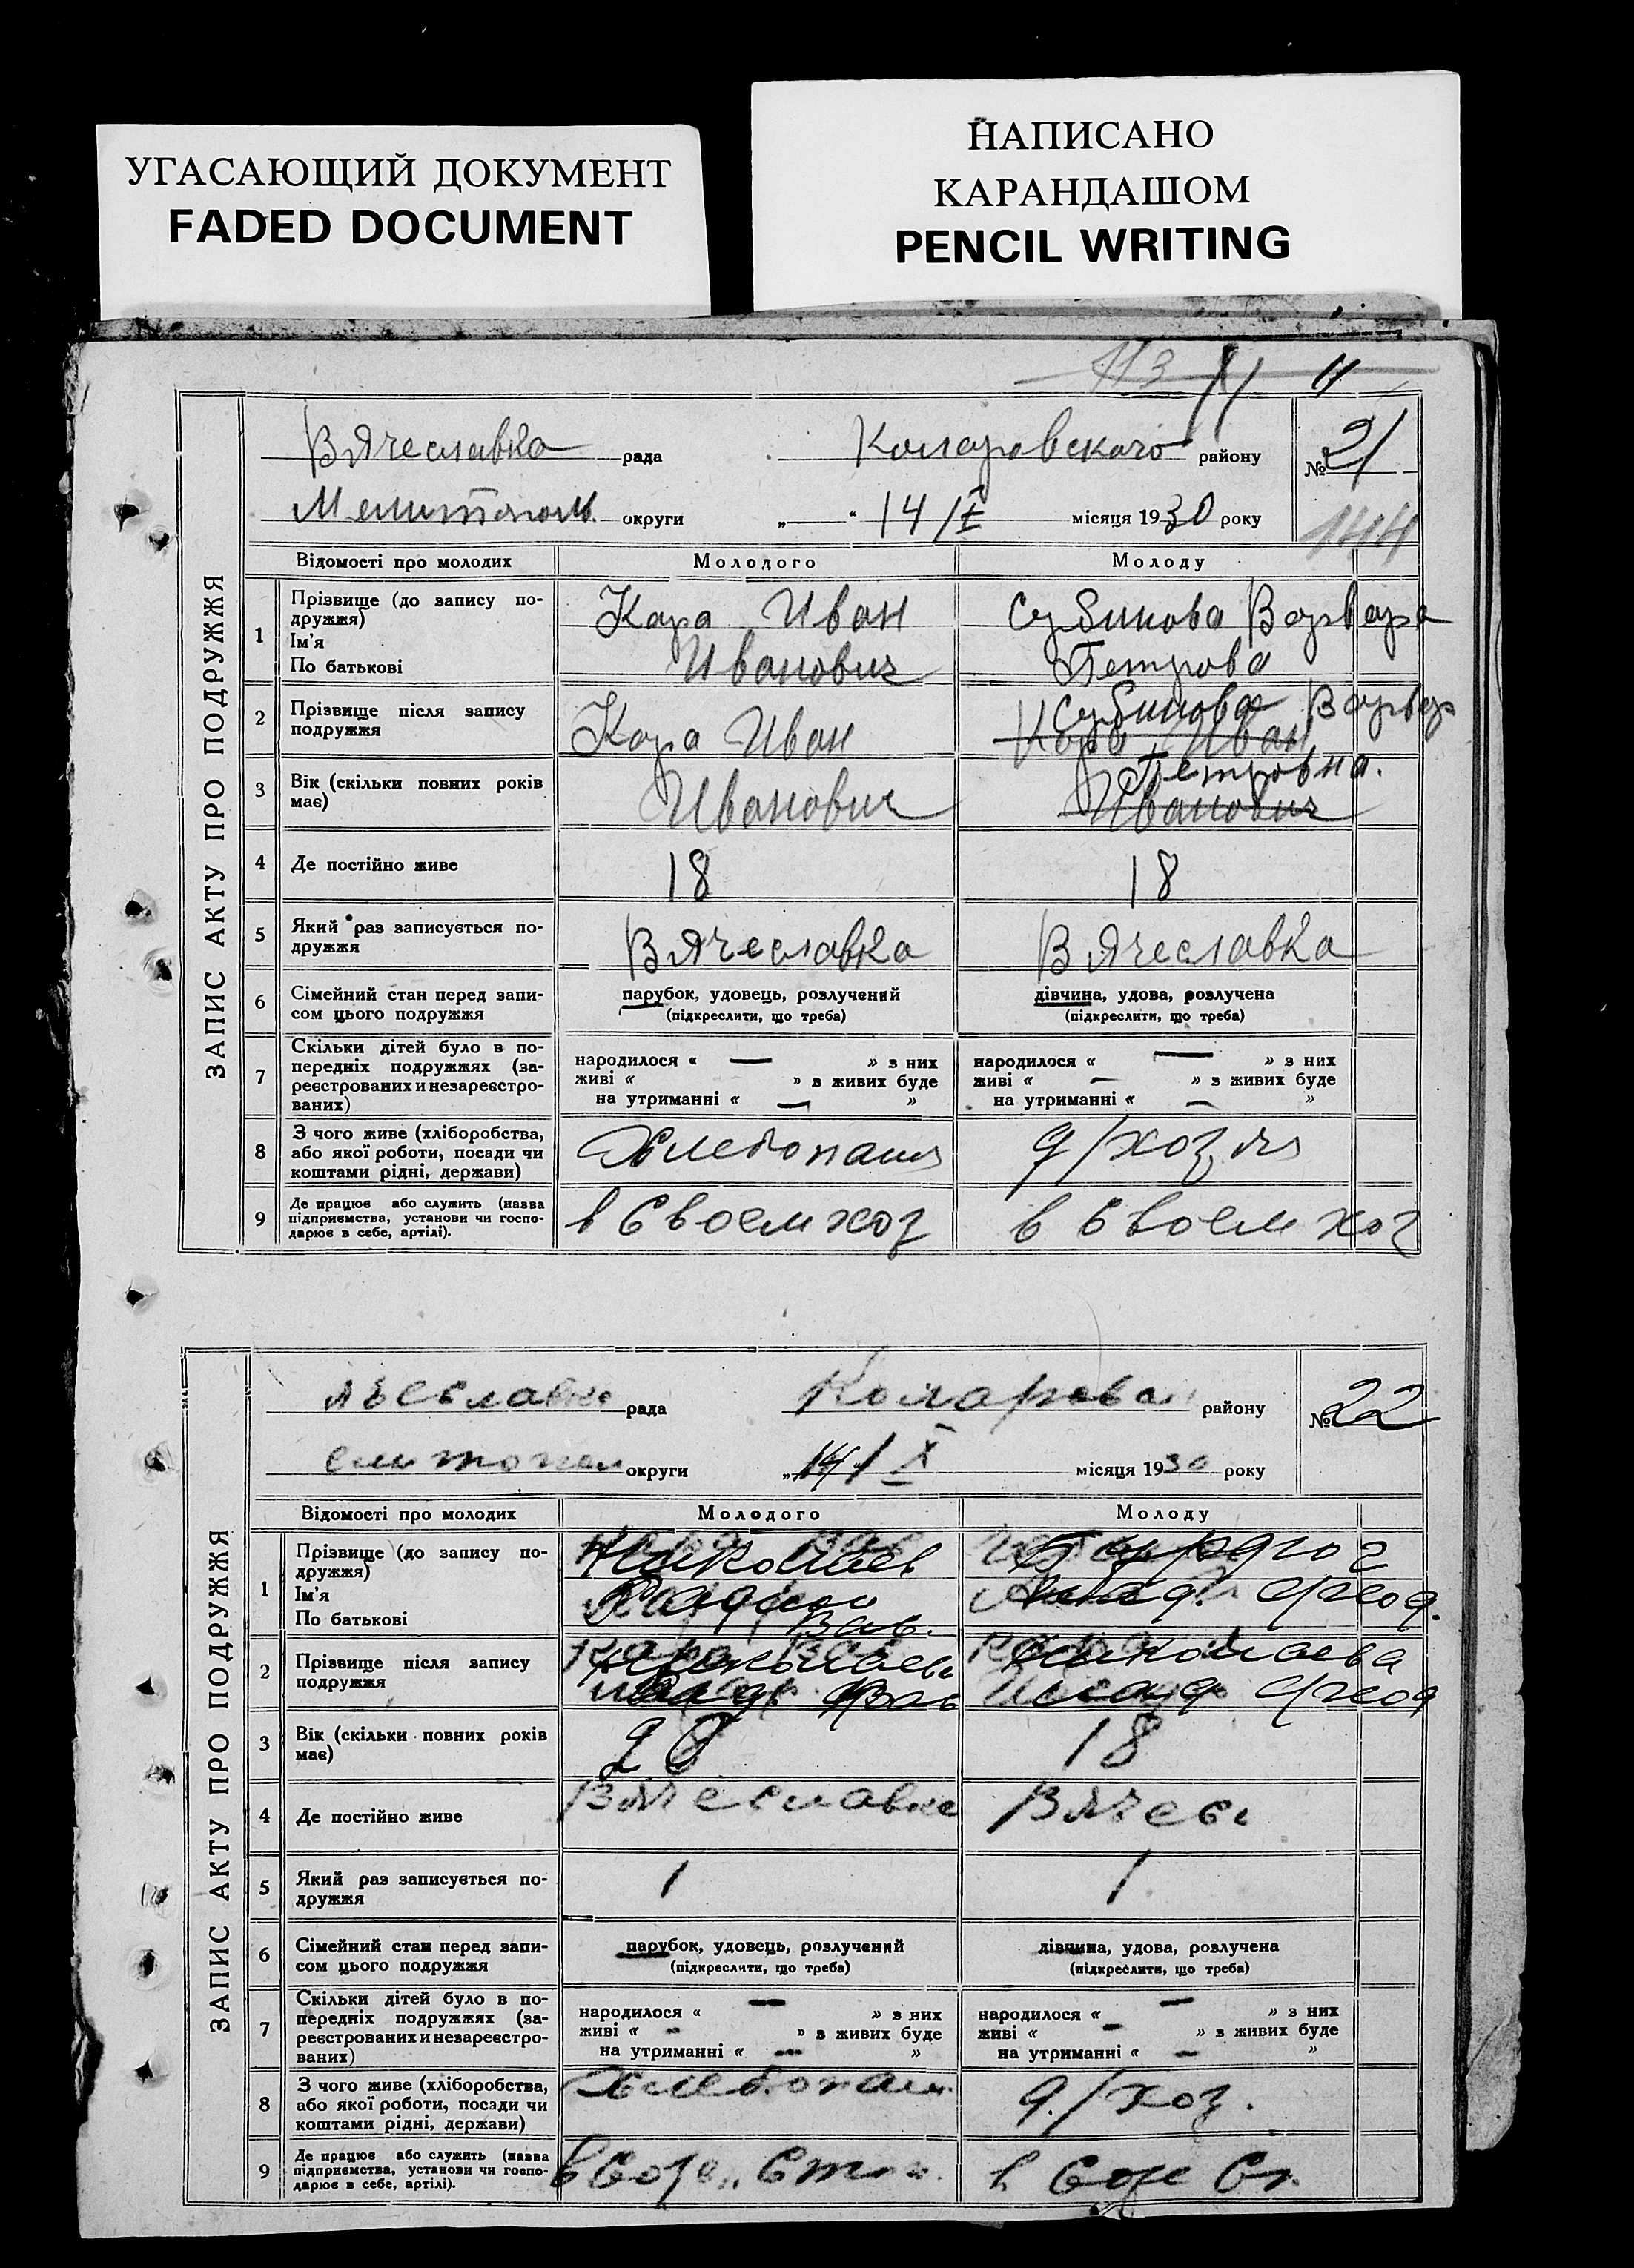 УГАСАЮЩИЙ ДОКУМЕНТ
FADED DOCUMENT
НАПИСАНО
КАРАНДАШОМ
PENCIL WRITING
113 11 11
ЗАПИС АКТУ ПРО ПОДРУЖЖЯ
Вячеславка рада Коларовского району № 21
Мелитополь. округи „ — “ 14/I місяця 1930 року
144
Відомості про молодих Молодого Молоду
1 Прізвище (до запису по-
дружжя)
Ім'я
По батькові
Кара Иван
Иванович
Сербинова Варвара
Петрова
2 Прізвище після запису
подружжя
Кара Иван
Сербинова Варвар
Кара Иван
3 Вік (скільки повних років
має)
Иванович
Петровна.
Иванович
4 Де постійно живе 18 18
5 Який раз записується по-
дружжя
Вячеславка Вячеславка
6 Сімейний стан перед запи-
сом цього подружжя
парубок, удовець, розлучений
(підкреслити, що треба)
дівчина, удова, розлучена
(підкреслити, що треба)
7 Скільки дітей було в по-
передніх подружжях (за-
реєстрованих и незареєстро-
ваних)
народилося « — » з них
живі « » з живих буде
на утриманні « — »
народилося « — » з них
живі « — » з живих буде
на утриманні « — »
8 З чого живе (хліборобства,
або якої роботи, посади чи
коштами рідні, держави)
Хлебопаш д/хоз
9 Де працює або служить (назва
підприємства, установи чи госпо-
дарює в себе, артілі).
в своем хоз в своем хоз
ЗАПИС АКТУ ПРО ПОДРУЖЖЯ
ячеславка рада Коларовск району № 22
елитопол округи „14“ / X місяця 1930 року
Відомості про молодих Молодого Молоду
1 Прізвище (до запису по-
дружжя)
Ім'я
По батькові
Николаев
Вас.
Феод.
2 Прізвище після запису
подружжя
Николаев
Вас
Николаева
Феод
3 Вік (скільки повних років
має)
20 18
4 Де постійно живе Вячеславка Вячесл
5 Який раз записується по-
дружжя
1 1
6 Сімейний стан перед запи-
сом цього подружжя
парубок, удовець, розлучений
(підкреслити, що треба)
дівчина, удова, розлучена
(підкреслити, що треба)
7 Скільки дітей було в по-
передніх подружжях (за-
реєстрованих и незареєстро-
ваних)
народилося « — » з них
живі « — » з живих буде
на утриманні « — »
народилося « — » з них
живі « — » з живих буде
на утриманні « — »
8 З чого живе (хліборобства,
або якої роботи, посади чи
коштами рідні, держави)
Хлебопаш. д./хоз.
9 Де працює або служить (назва
підприємства, установи чи госпо-
дарює в себе, артілі).
в в